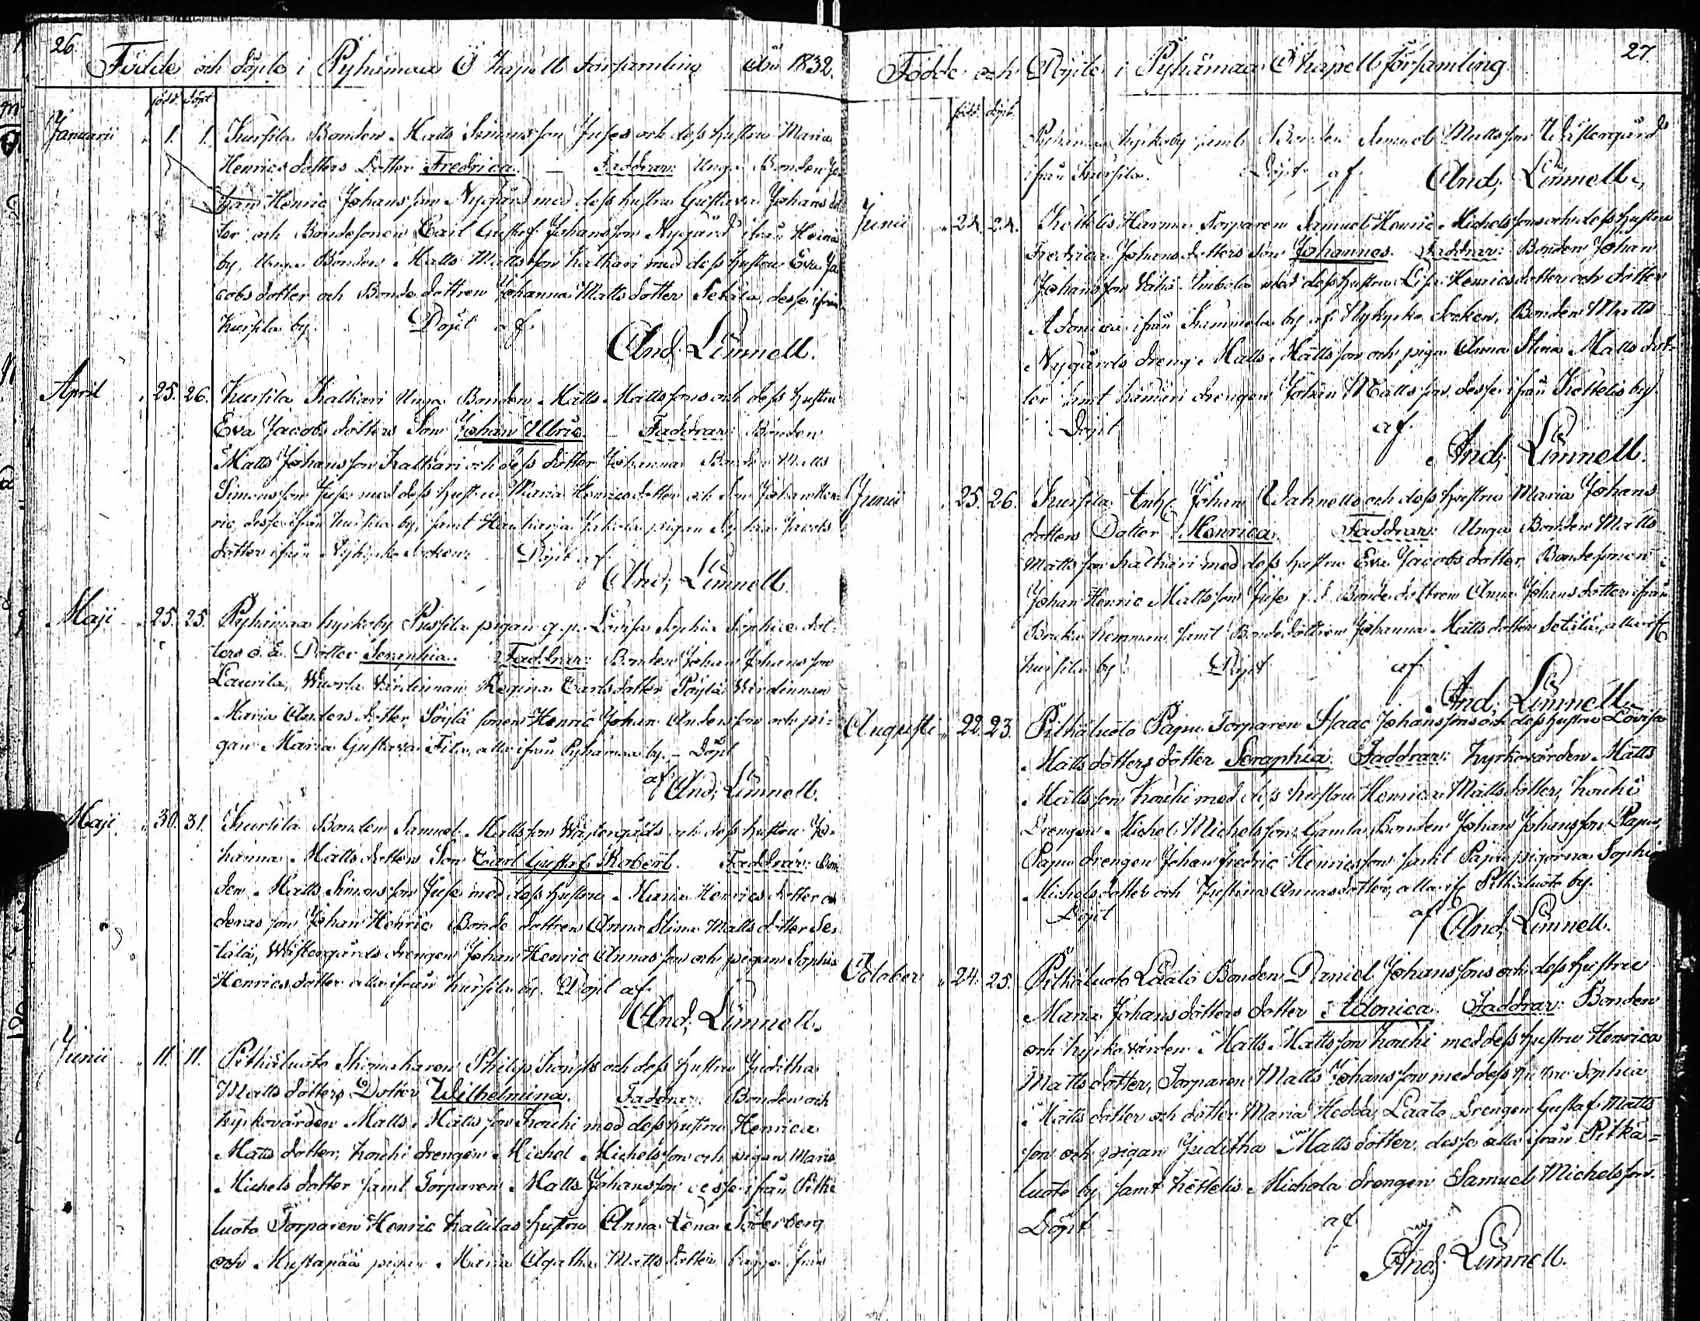 26.
Födde och döpte i Pyhämaa Ö Kapell Församling År 1832.
född. döpt
Januarii 1. 1. Kursila Bonden Matts Simonsson Juses och dess hustru Maria
Henricsdotters Dotter Fredrica. — Faddrar: Unga Bonden Jo-
han Henric Johansson Nygård med dess hustru Gustava Johans dot
ter och Bondesonen Carl Gustaf Johansson Nygård ifrån Heinis
by, Unga Bonden Matts Mattsson Kalkari med dess hustru Eva Ja
cobsdotter och Bonde dottren Johanna Matts dotter Setälä, desse ifrån
Kursila by. Döpt af
And. Linnell.
April 25. 26. Kursila Kalkari Unga Bonden Matts Mattssons och dess hustru
Eva Jacobs dotters Son Johan Ulric. Faddrar: Bonden
Matts Johansson Kalkari och dess dotter Johanna Bonden Matts
Simonsson Juse med dess hustru Maria Henricsdotter och Son Johan Hen
ric, desse ifrån Kursila by, samt pigan Jacobs
dotter ifrån Nykyrko Socken. Döpt af
And. Linnell.
Maji 25. 25. Pyhämaa kyrkoby pigan q.p. Lovisa Sophia Sophiæ dot-
ters o.ä. Dotter Seraphia. Faddrar: Bonden Johan Johansson
Laurila, Wuorla Värdinnan Regina Carlsdotter Söylä Värdinnan
Maria Anders dotter Söylä sonen Henric Johan Andersson och pi-
gan Maria Gustava alla ifrån Pyhämaa by. — Döpt
af And. Linnell.
Maji 30. 31. Kursila Bonden Samuel Mattsson Wästergårds och dess hustru Jo-
hanna Matts dotters Son Carl Gustaf Robert. Faddrar: Bon
den Matts Simonsson Juse med dess hustru Maria Henrics dotter och
deras son Johan Henric Bonde dottren Anna Stina Matts dotter Se-
tälä, Wästergårds drengen Johan Henric Annasson och pigan Sophia
Henricsdotter alla ifrån Kursila by. Döpt af
And. Linnell.
Junii 11. 11. Pitkäluoto Philip och dess hustru Juditha
Matts dotters Dotter Wilhelmina. Faddrar: Bonden och
kyrkovärden Matts Mattsson Kouhi med dess hustru Henrica
Matts dotter, Kouhi drengen Michel Michelsson och pigan Maria
Michels dotter samt Torparen Matts Johansson desse ifrån Pitkä
luoto Torparen Henric hustru Anna Lena Söderberg
och pigan Maria Agatha Matts dotter begge från
27.
Födde och Döpte i Pyhämaa Ö Kapell församling
född. döpt.
Pyhämaa kyrkoby samt Bonden Samuel Mattsson Wästergård
ifrån Kursila. Döpt af And. Linnell.
Junii 24. 24. Kettelis Torparen Samuel Henric Michelssons och dess hustru
Fredrica Johans dotters Son Johannes. Faddrar: Bonden Johan
Johansson med dess hustru Lisa Henricsdotter och dotter
Adonica ifrån by af Nykyrko Socken, Bonden Matts
Nygårds dreng Matts Mattsson och pigan Anna Stina Matts dot-
ter samt drengen Johan Mattsson desse ifrån Kettelis by.
Döpt af
And. Linnell.
Junii 25. 26. Kursila Johan och dess hustru Maria Johans
dotters Dotter Henrica. Faddrar: Unga Bonden Matts
Mattsson Kalkari med dess hustru Eva Jacobs dotter, Bondesonen
Johan Henric Mattsson Juse Bonde dottren Anna Johans dotter ifrån
hemman samt Bonde dottren Johanna Matts dotter Setälä, alla if
Kursila by. Döpt af
And. Linnell.
Augusti 22. 23. Pitkäluoto Papu Torparen Isaac Johanssons och dess hustru Lovisa
Matts dotters dotter Seraphia. Faddrar: kyrkovärden Matts
Mattsson Kouhi med dess hustru Henrica Matts dotter, Kouhi
drengen Michel Michelsson Gamla Bonden Johan Johansson Papu
Papu drengen Johan Fredric Henricsson samt Papu pigorna Sophia
Michels dotter och Justina Annasdotter, alla if Pitkäluoto by.
Döpt af And. Linnell.
October 24. 25. Pitkäluoto Laato Bonden Daniel Johanssons och dess hustru
Maria Johans dotters dotter Adonica. Faddrar: Bonden
och kyrkovärden Matts Mattsson Kouhi med dess hustru Henrica
Matts dotter, Torparen Matts Johansson med dess hustru Sophia
Matts dotter och dotter Maria Hedda, Laato drengen Gustaf Matts
son och pigan Juditha Matts dotter, desse alla ifrån Pitkä-
luoto by samt Kettelis Michola drengen Samuel Michelsson.
Döpt af
And. Linnell.